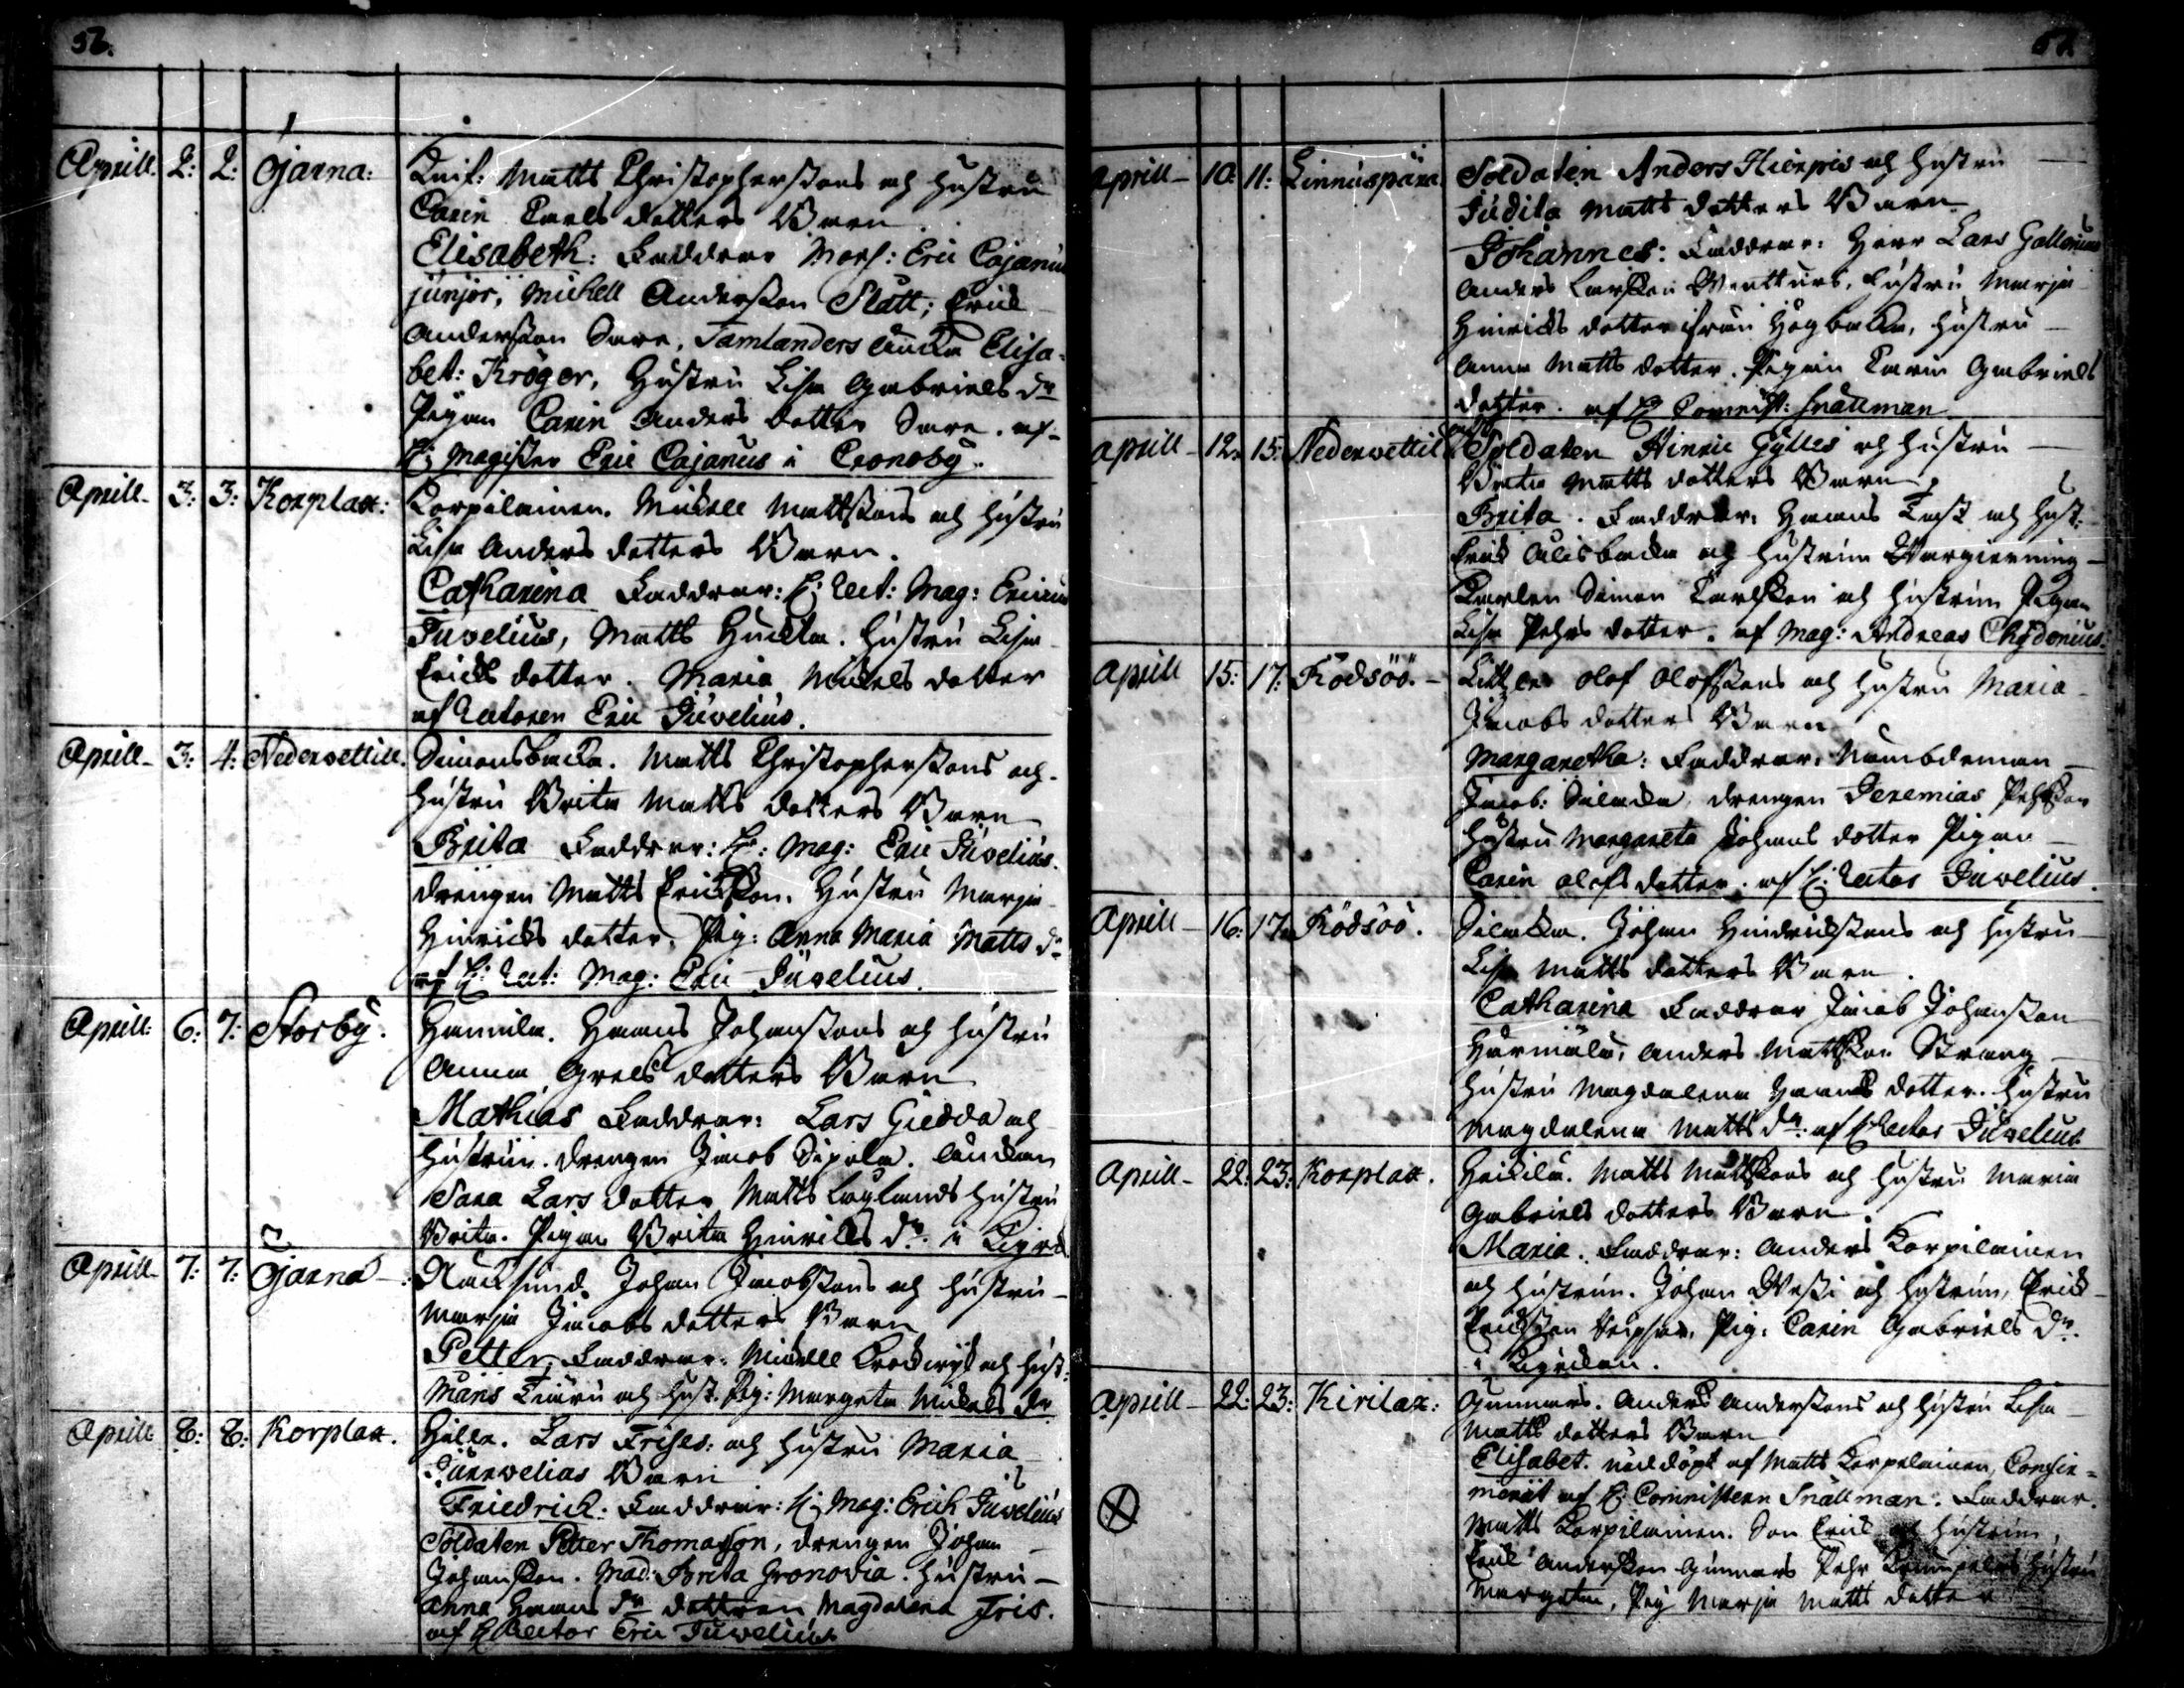 56.
Aprill. 2: 2: Gjarna: Knif: Matts Christopherssons och hustru
Carin Carls dotters Barn
Elisabeth: Faddrar Mons: Eric Cajanus
junjor, Mickell Andersson Slått; Erick
Andersson Sare, Tamlanders Enckia Elisa-
bet: Kröger, Hustru Lisa Gabriels dr
Pigan Carin Anders dotter Sare. af
H: Magister Eric Cajanus i Cronoby.
Aprill- 3: 3: Korplax: Korpilainen. Mickell Mattssons och hustru
Lisa Anders dotters Barn.
Catharina Faddrar: H: Rect: Mag: Ericus
Juvelius, Matts Huckla. hustru Lisa
Ericks dotter. Maria Mickels dotter
af Rectoren Eric Juvelius.
Aprill- 3: 4: Nedervetill. Simonsbacka. Matts Christopherssons och
hustru Brita Matts dotters Barn
Brita Faddrar: Hr: Mag: Eric Juvelius.
drengen Matts Ericksson. Hustru Marja
Hinricks dotter. Pig: Anna Maria Matts dr
af H: Rect: Mag: Eric Juvelius.
Aprill: 6: 7: Storby. Hannula. Hanns Johanssons och hustru
Anna Grels dotters Barn
Mathias Faddrar: Lars Giedda och
hustrun. drengen Jacob Sipola. Enckan
Sara Lars dotter Matts Laglands hustru
Brita. Pigan Brita Hinricks dr. i Kyrk
Aprill- 7: 7: Gjarna Johan Jacobssons och hustru
Marja Jacobs dotters Barn
Petter. Faddrar. Mickell och hust:
Måns och hust. Pig: Margeta Mickels dr
Aprill- 8: 8: Korplax. Hille. Lars Frises: och hustru Maria
Juvvelias Barn
Friedrich. Faddrar: H: Mag: Erich Juvelius
Soldaten Petter Thomasson, drengen Johan
Johansson. Mad: Brita Gronovia. hustru
Anna Hanns dr dottren Magdalena Fris.
af H Rector Eric Juvelius
57.
Aprill- 10: 11: Linnuspära. Soldaten Anders Hierpes och hustru
Judita Matts dotters Barn
Johannes: Faddrar: Herr Lars Gallenius
Anders Larsson hustru Marja
Hinricks dotter ifrån Högbacka, hustru
Anna Matts dotter. Pigan Carin Gabriels
dotter. af H Comnist: Snällman
Aprill- 12: 15: Nedervettil Soldaten Hinric Gylles och hustru
Brita Matts dotters Barn
Brita. Faddrar. Hanns Kask och hust.
Erick Ahlsbacka och hustrun
Karlen Simon Carlsson och hustrun Pigan
Lisa Pehrs dotter. af Mag: Andreas Chydenius.
Aprill 15: 17: Rödsöö. Kittler Olof Olofssons och hustru Maria
Jacobs dotters Barn
Margaretha: Faddrar. Nämbdeman
Jacob: Silacka drengen Jeremias Pehrsson
hustru Margareta Johans dotter Pigan
Carin Olofs dotter. af H: Rector Juvelius.
Aprill- 16: 17: Rödsöö. Silacka. Johan Hindrickssons och hustru
Lisa Matts dotters Barn.
Catharina Faddrar Jacob Johansson
Härmälä, Anders Mattsson Strang
hustru Magdalena Hanns dotter. hustru
Magdalena Matts dr: af H Rector Juvelius
Aprill- 22: 23: Korplax. Heikilä. Matts Mattssons och hustru Maria
Gabriels dotters Barn.
Maria. Faddrar: Anders Korpilainen
och hustrun. Johan och hustrun, Erick
Ericksson Pig. Carin Gabriels dr.
i Kyrckan.
Aprill- 22: 23: Kirilax: Gunnars. Anders Anderssons och hustru Lisa
Matts dotters Barn
Elisabet. nöddöpt af Matts Korpelainen, Confir=
merat af H: Comnistern Snällman. Faddrar.
Matts Korpilainen. Son Erick och hustrun,
Erick Andersson Gunnars Pehr hustru
Margeta, Pig Marja Matts dotter